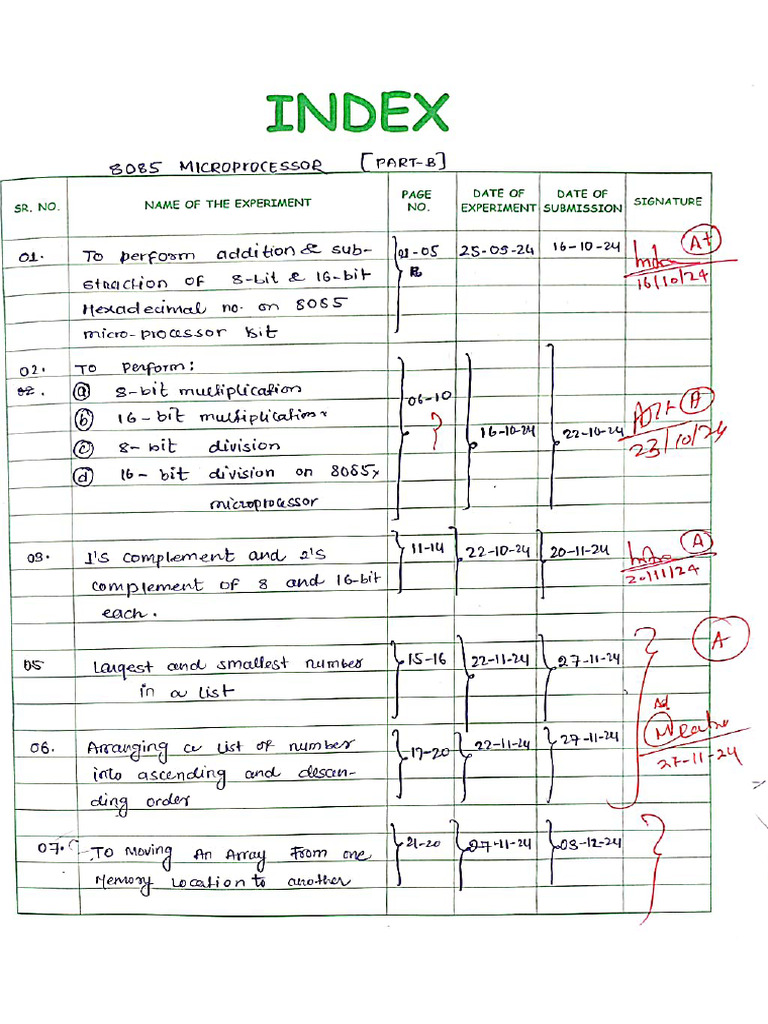 INDEX
8085 MICROPROCESSOR [PART-B]
SR. NO. NAME OF THE EXPERIMENT PAGE NO. DATE OF EXPERIMENT DATE OF SUBMISSION SIGNATURE
01. To perform addition & sub- 01-05 25-09-24 16-10-24 A+
straction of 8-bit & 16-bit 16/10/24
Hexadecimal no. on 8085
micro-processor kit
02. To perform:
02. (a) 8-bit multiplication 06-10 A
(b) 16-bit multiplication
(c) 8-bit division 16-10-24 22-10-24 23/10/24
(d) 16-bit division on 8085
microprocessor
03. 1's complement and 2's 11-14 22-10-24 20-11-24 A
complement of 8 and 16-bit 20/11/24
each.
05 Largest and smallest number 15-16 22-11-24 27-11-24 A
in a list
06. Arranging a list of number 17-20 22-11-24 27-11-24
into ascending and descen- 27-11-24
ding order
07. To Moving An Array From one 21-20 27-11-24 03-12-24
Memory Location to another